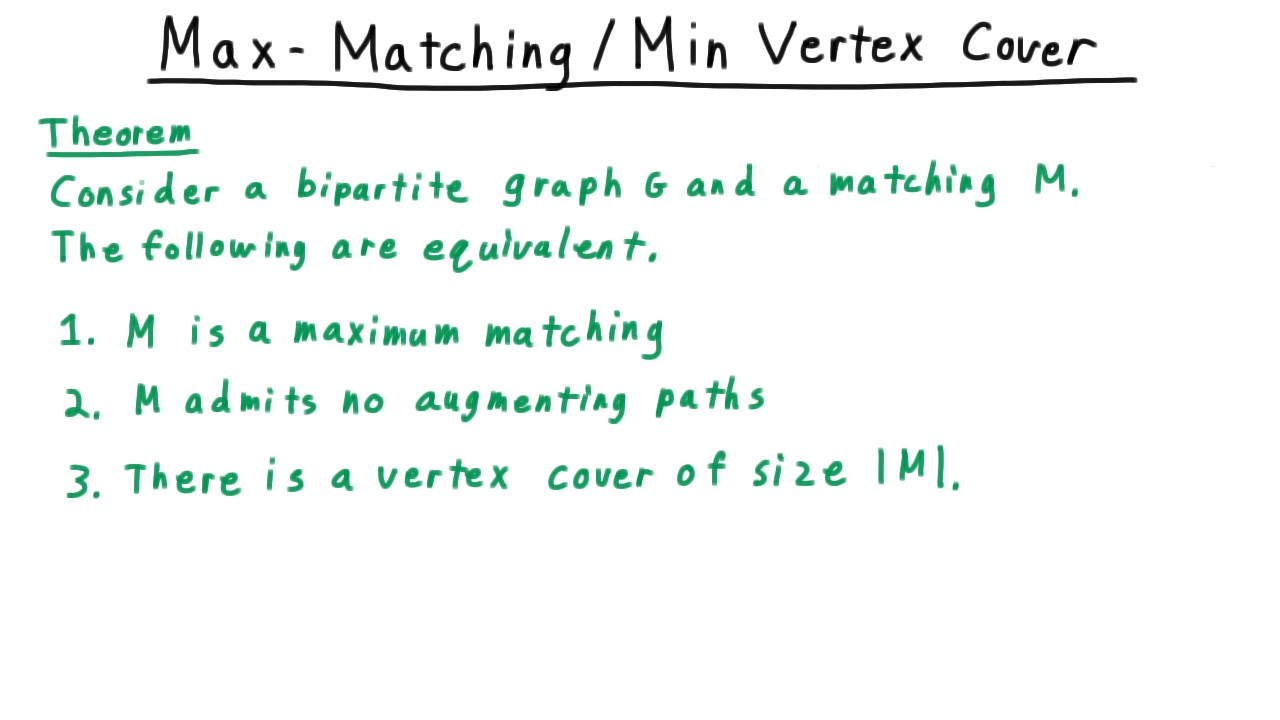 Max-Matching/Min Vertex Cover
Theorem
Consider a bipartite graph G and a matching M.
The following are equivalent.
1. M is a maximum matching
2. M admits no augmenting paths
3. There is a vertex cover of size |M|.